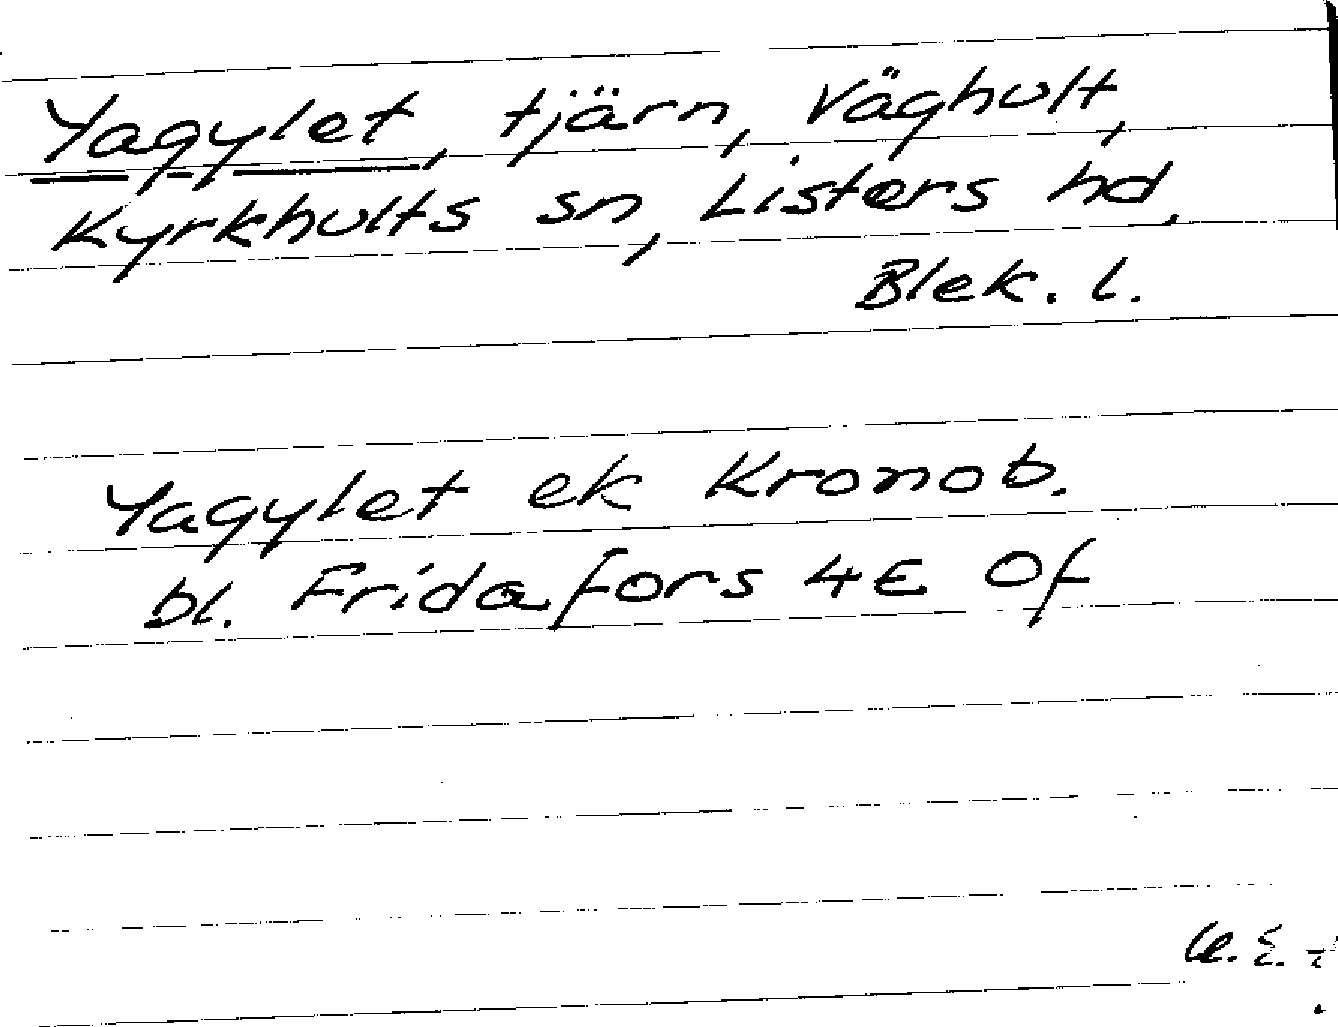 Yagylet, tjärn, Väghult,
Kyrkhults sn, Listers hd,
Blek. l.
Yagylet ek Kronob.
bl. Fridafors 4E Of